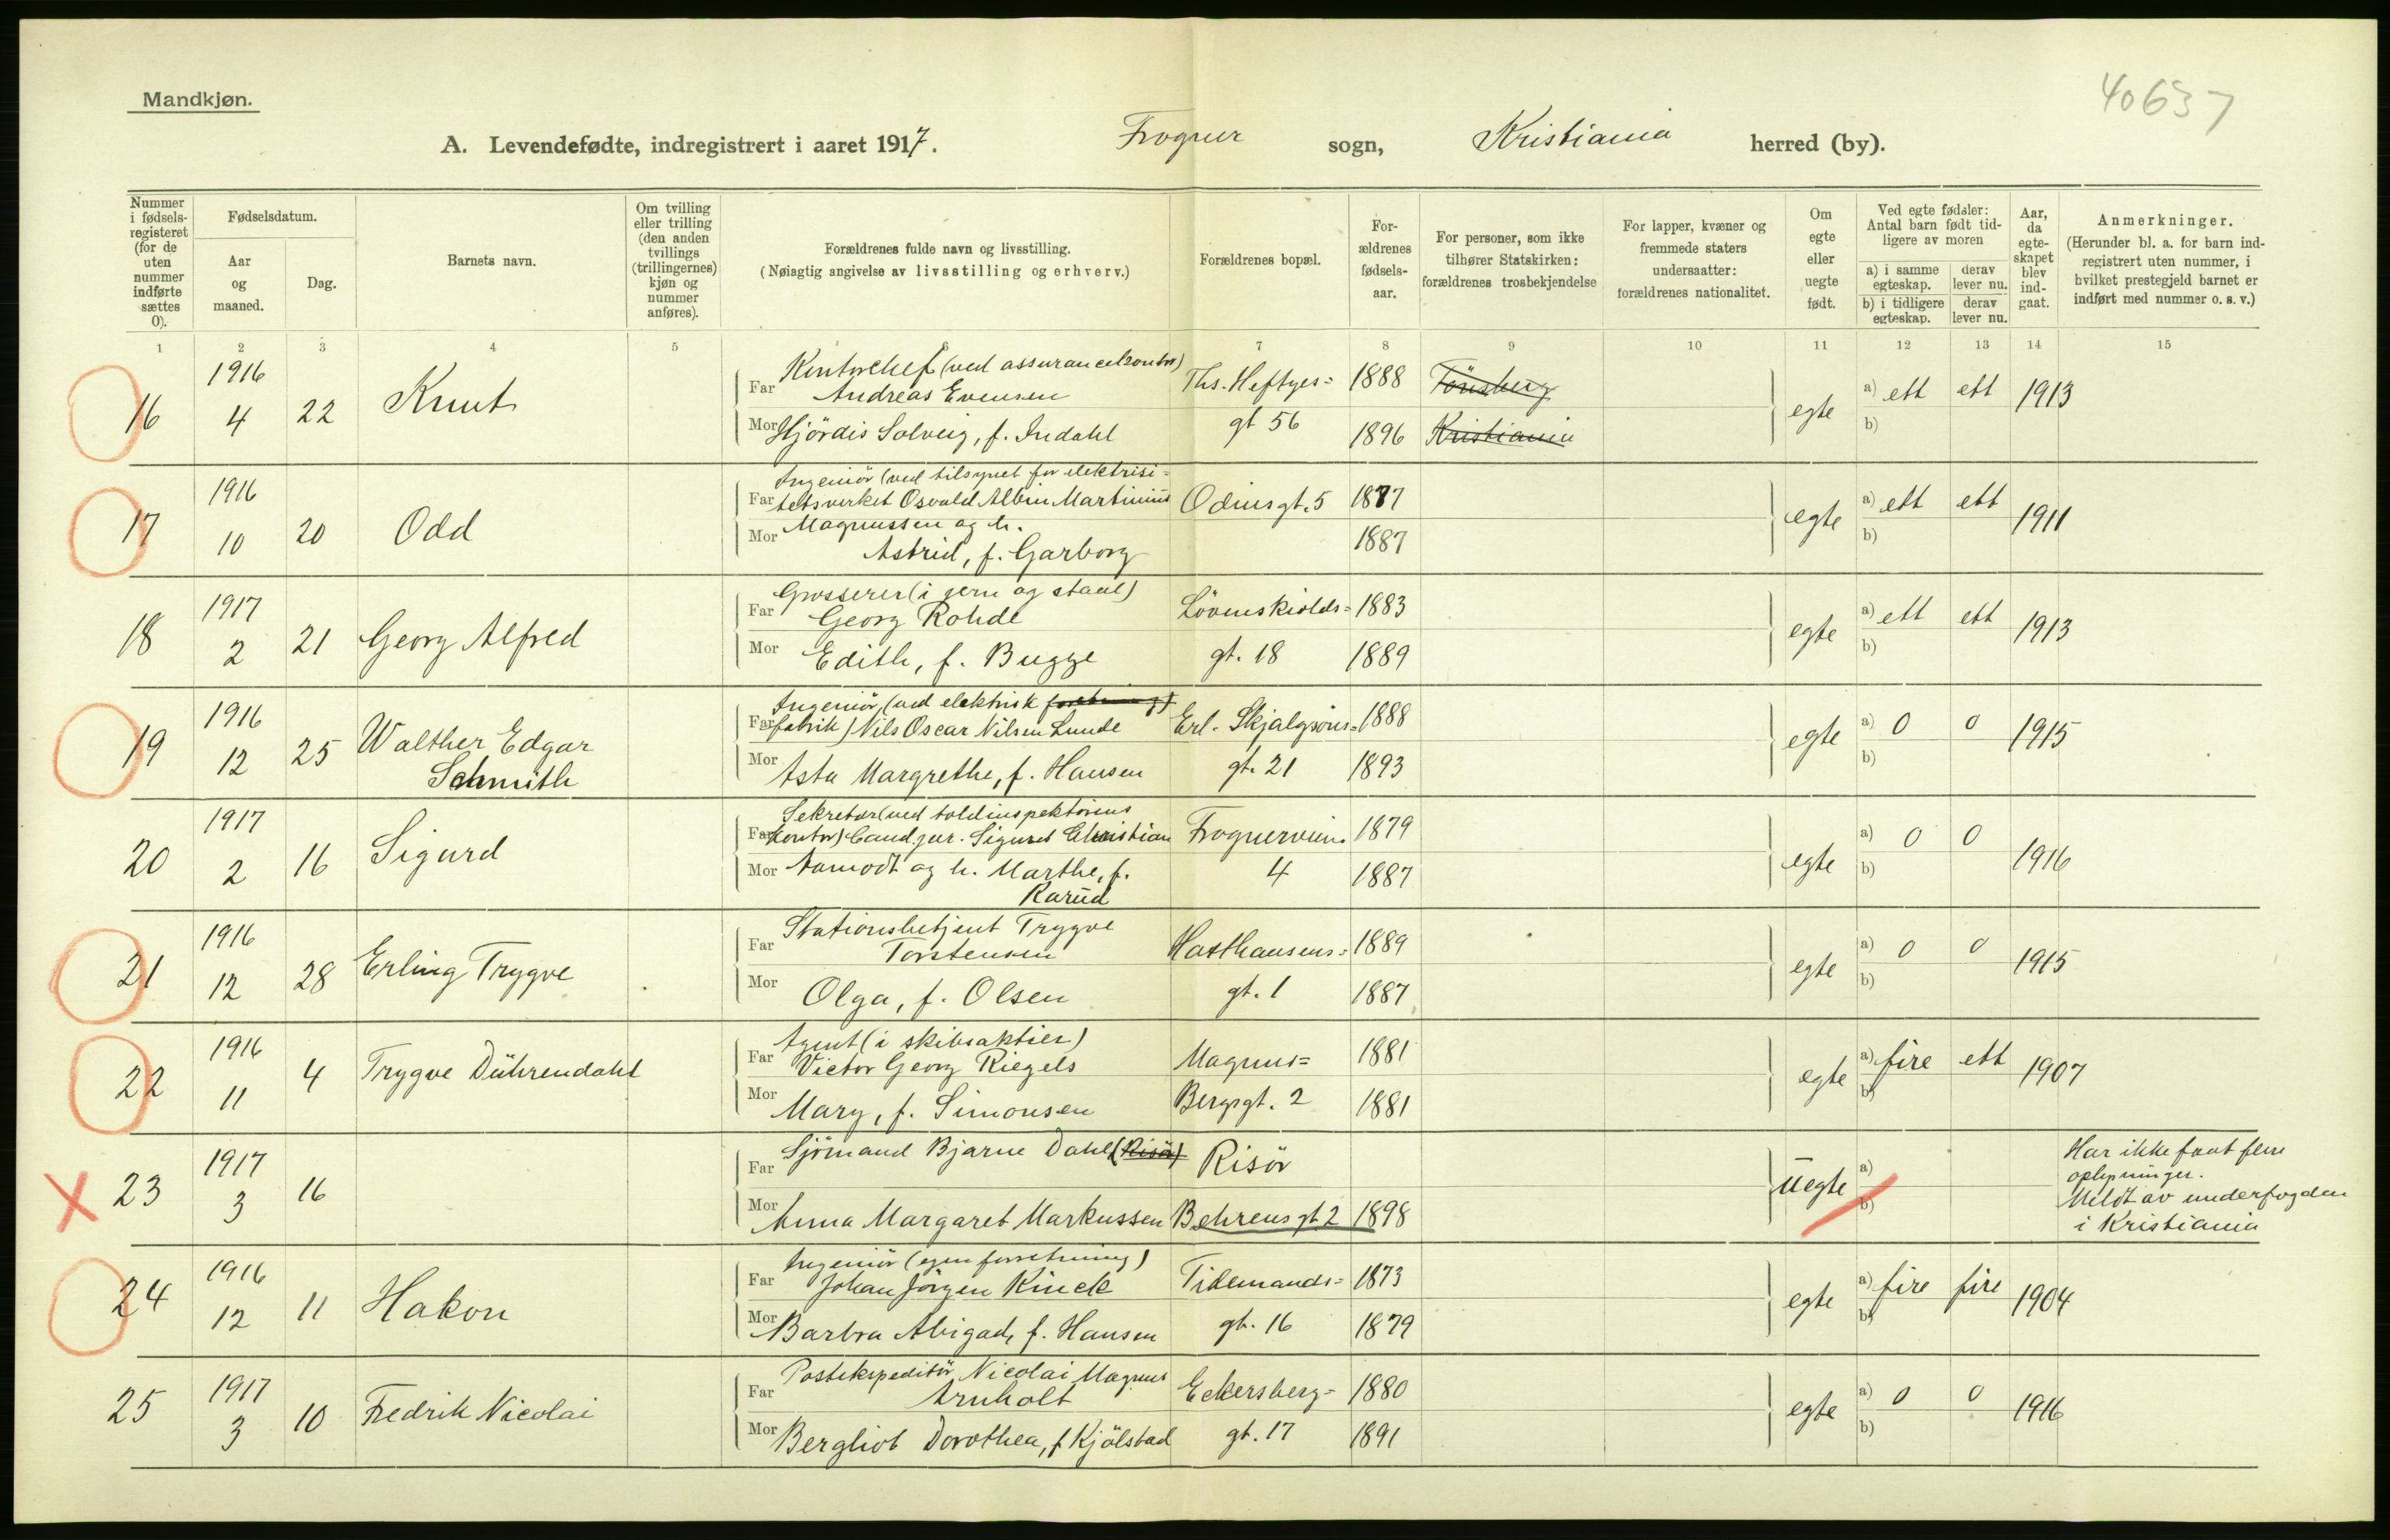 Mandkjøn.
40637
A. Levendefødte, indregistrert i aaret 1917. Frogner sogn, Kristiania herred (by).
Nummer i fødsels-registeret (for de uten nummer indførte sættes 0).
Fødselsdatum.
Aar og maaned.
Dag.
Barnets navn.
Om tvilling eller trilling (den anden tvillings (trillingernes) kjøn og nummer anføres).
Forældrenes fulde navn og livsstilling.
(Nøiagtig angivelse av livsstilling og erhverv.)
Forældrenes bopæl.
For-ældrenes fødsels-aar.
For personer, som ikke tilhører Statskirken: forældrenes trosbekjendelse
For lapper, kvæner og fremmede staters undersaatter: forældrenes nationalitet.
Om egte eller uegte født.
Ved egte fødsler: Antal barn født tid-ligere av moren
a) i samme egteskap.
derav lever nu.
b) i tidligere egteskap.
derav lever nu.
Aar, da egte-skapet blev ind-gaat.
Anmerkninger.
(Herunder bl. a. for barn ind-registrert uten nummer, i hvilket prestegjeld barnet er indført med nummer o. s. v.)
1 2 3 4 5 6 7 8 9 10 11 12 13 14 15
16 1916 4 22 Knut
Far Kontorchef (ved assurancekontor)
Andreas Evensen Ths. Heftyes= 1888 Tönsberg
Mor Hjördis Solveig, f. Indahl gt 56 1896 Kristiania
egte a) ett ett 1913
b)
17 1916 10 20 Odd
Ingeniör (ved tilsynet for elektrisi=
Far tetsverket Osvald Albin Martinius Odinsgt. 5 1877
Mor Magnussen og h.
Astrid, f. Garborg 1887
egte a) ett ett 1911
b)
18 1917 2 21 Georg Alfred
Far Grosserer (i jern og staal)
Georg Rohde Lövenskiolds= 1883
Mor Edith, f. Bugge gt. 18 1889
egte a) ett ett 1913
b)
19 1916 12 25 Walther Edgar
Schmith
Ingeniör, (ved elektrisk
Far fabrik) Nils Oscar Nilsen Lunde Erl. Skjalgsöns= 1888
Mor Asta Margrethe, f. Hansen gt. 21 1893
egte a) 0 0 1915
b)
20 1917 2 16 Sigurd
Sekretær (ved toldinspektörens
Far kontor) Cand. jur. Sigurd Christian Frognerveien 1879
Mor Aamodt og h. Marthe, f. 4 1887
Karud
egte a) 0 0 1916
b)
21 1916 12 28 Erling Trygve
Far Stationsbetjent Trygve
Torstensen Hasthausens= 1889
Mor Olga, f. Olsen gt. 1 1887
egte a) 0 0 1915
b)
22 1916 11 4 Trygve Dührendahl
Far Agent (i skibsaktier)
Victor Georg Riegels Magnus= 1881
Mor Mary, f. Simonsen Bergsgt. 2 1881
egte a) fire ett 1907
b)
23 1917 3 16
Far Sjömand Bjarne Dahl (Risör) Risör
Mor Anna Margaret Markussen Behrensgt 2 1898
uegte a)
b)
Har ikke faat flere
oplysninger.
Meldt av underfogden
i Kristiania
24 1916 12 11 Hakon
Far Ingeniör (egen forretning)
Johan Jörgen Kinck Tidemands= 1873
Mor Barbra Abigael, f. Hansen gt. 16 1879
egte a) fire fire 1904
b)
25 1917 3 10 Fredrik Nicolai
Far Postekspeditör Nicolai Magnus
Arnholt Eckersberg= 1880
Mor Bergliot Dorothea, f Kjölstad gt. 17 1891
egte a) 0 0 1916
b)